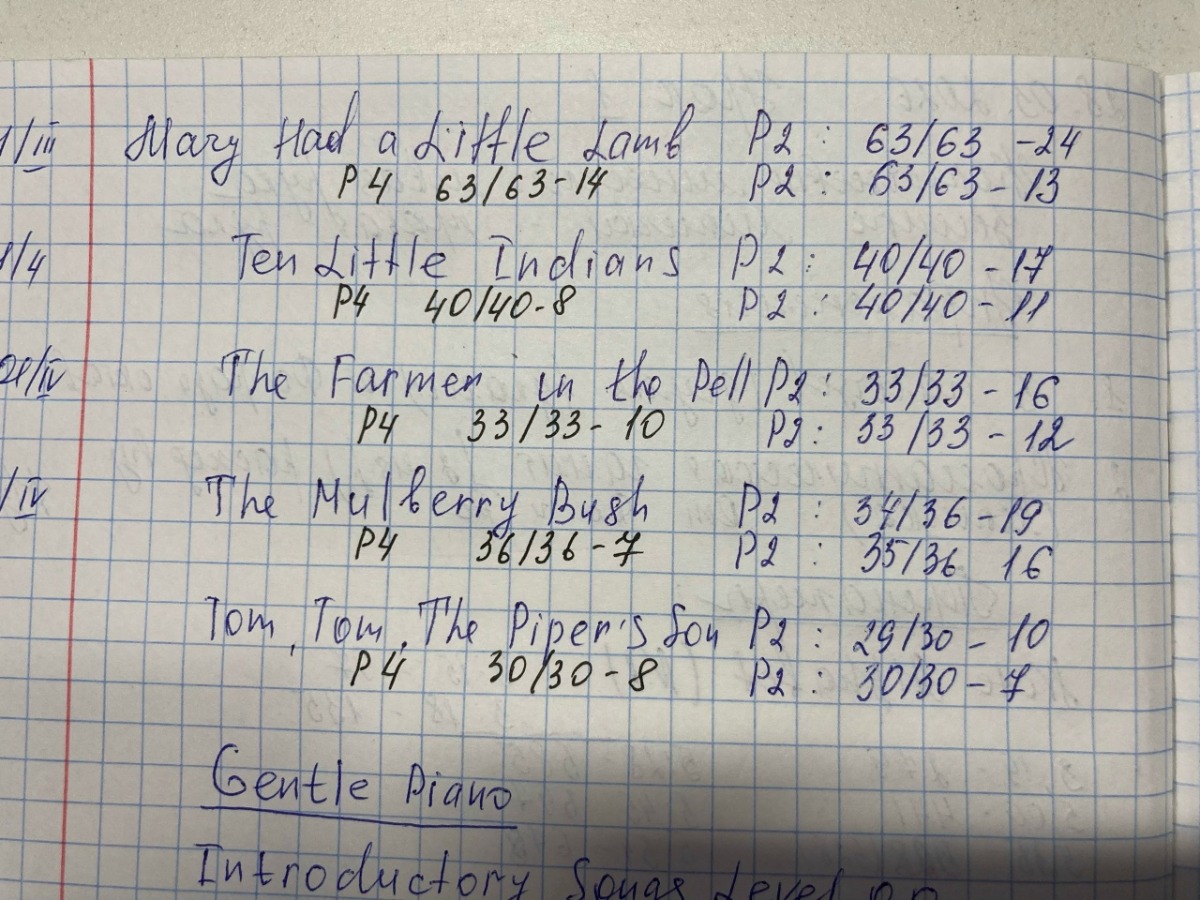 /III Mary Had a Little Lamb P2 : 63/63 - 24
P4 63/63 - 14 P2 : 63/63 - 13
/4 Ten Little Indians P2 : 40/40 - 17
P4 40/40 - 8 P2 : 40/40 - 11
/IV The Farmer in the Dell P2 : 33/33 - 16
P4 33/33 - 10 P2 : 33/33 - 12
/IV The Mulberry Bush P2 : 34/36 - 19
P4 36/36 - 7 P2 : 35/36 16
Tom, Tom, The Piper's Son P2 : 29/30 - 10
P4 30/30 - 8 P2 : 30/30 - 7
Gentle Piano
Introductory Songs Level